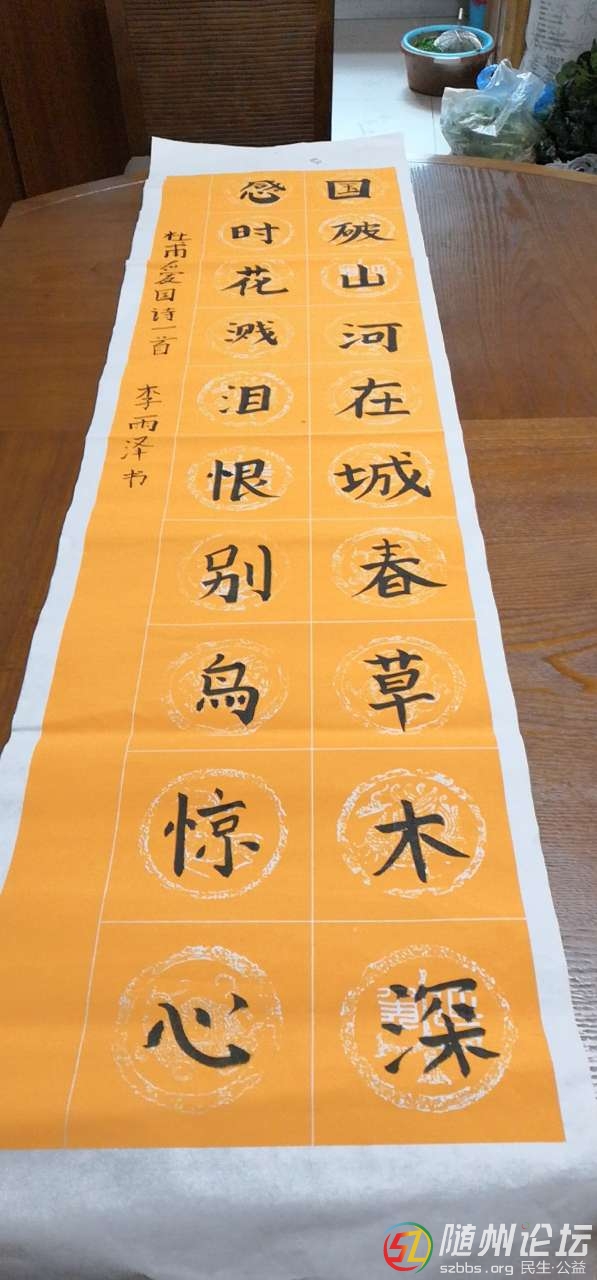 国破山河在城春草木深
感时花溅泪恨别鸟惊心
杜甫爱国诗一首 李雨泽书
随州论坛
szbbs.org 民生·公益